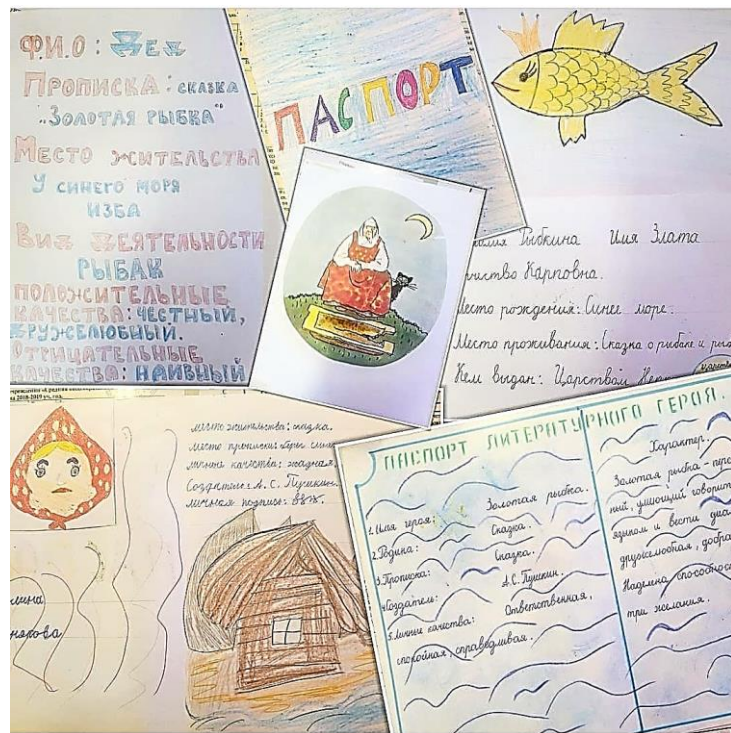 Ф.И.О: Дед
Прописка: сказка
"Золотая рыбка"
Место жительства
У синего моря
изба
Вид деятельности
рыбак
положительные
качества: честный,
дружелюбный.
Отрицательные
качества: наивный
ПАСПОРТ
Рыбкина Имя Злата
Карповна.
Место рождения: Синее море.
Место проживания: Сказка о рыбаке и
Кем выдан: Царством
место жительства: сказка.
место прописки:
личные качества: жадная.
Создатель: А. С. Пушкин.
личная подпись:
ПАСПОРТ ЛИТЕРАТУРНОГО ГЕРОЯ.
1. Имя героя: Золотая рыбка.
2. Родина: Сказка.
3. Прописка: Сказка.
4. Создатель: А.С. Пушкин.
5. личные качества: Ответственная,
спокойная, справедливая.
Характер.
Золотая рыбка -
умеющий
языком и вести
дружелюбная,
Наделена
три желания.